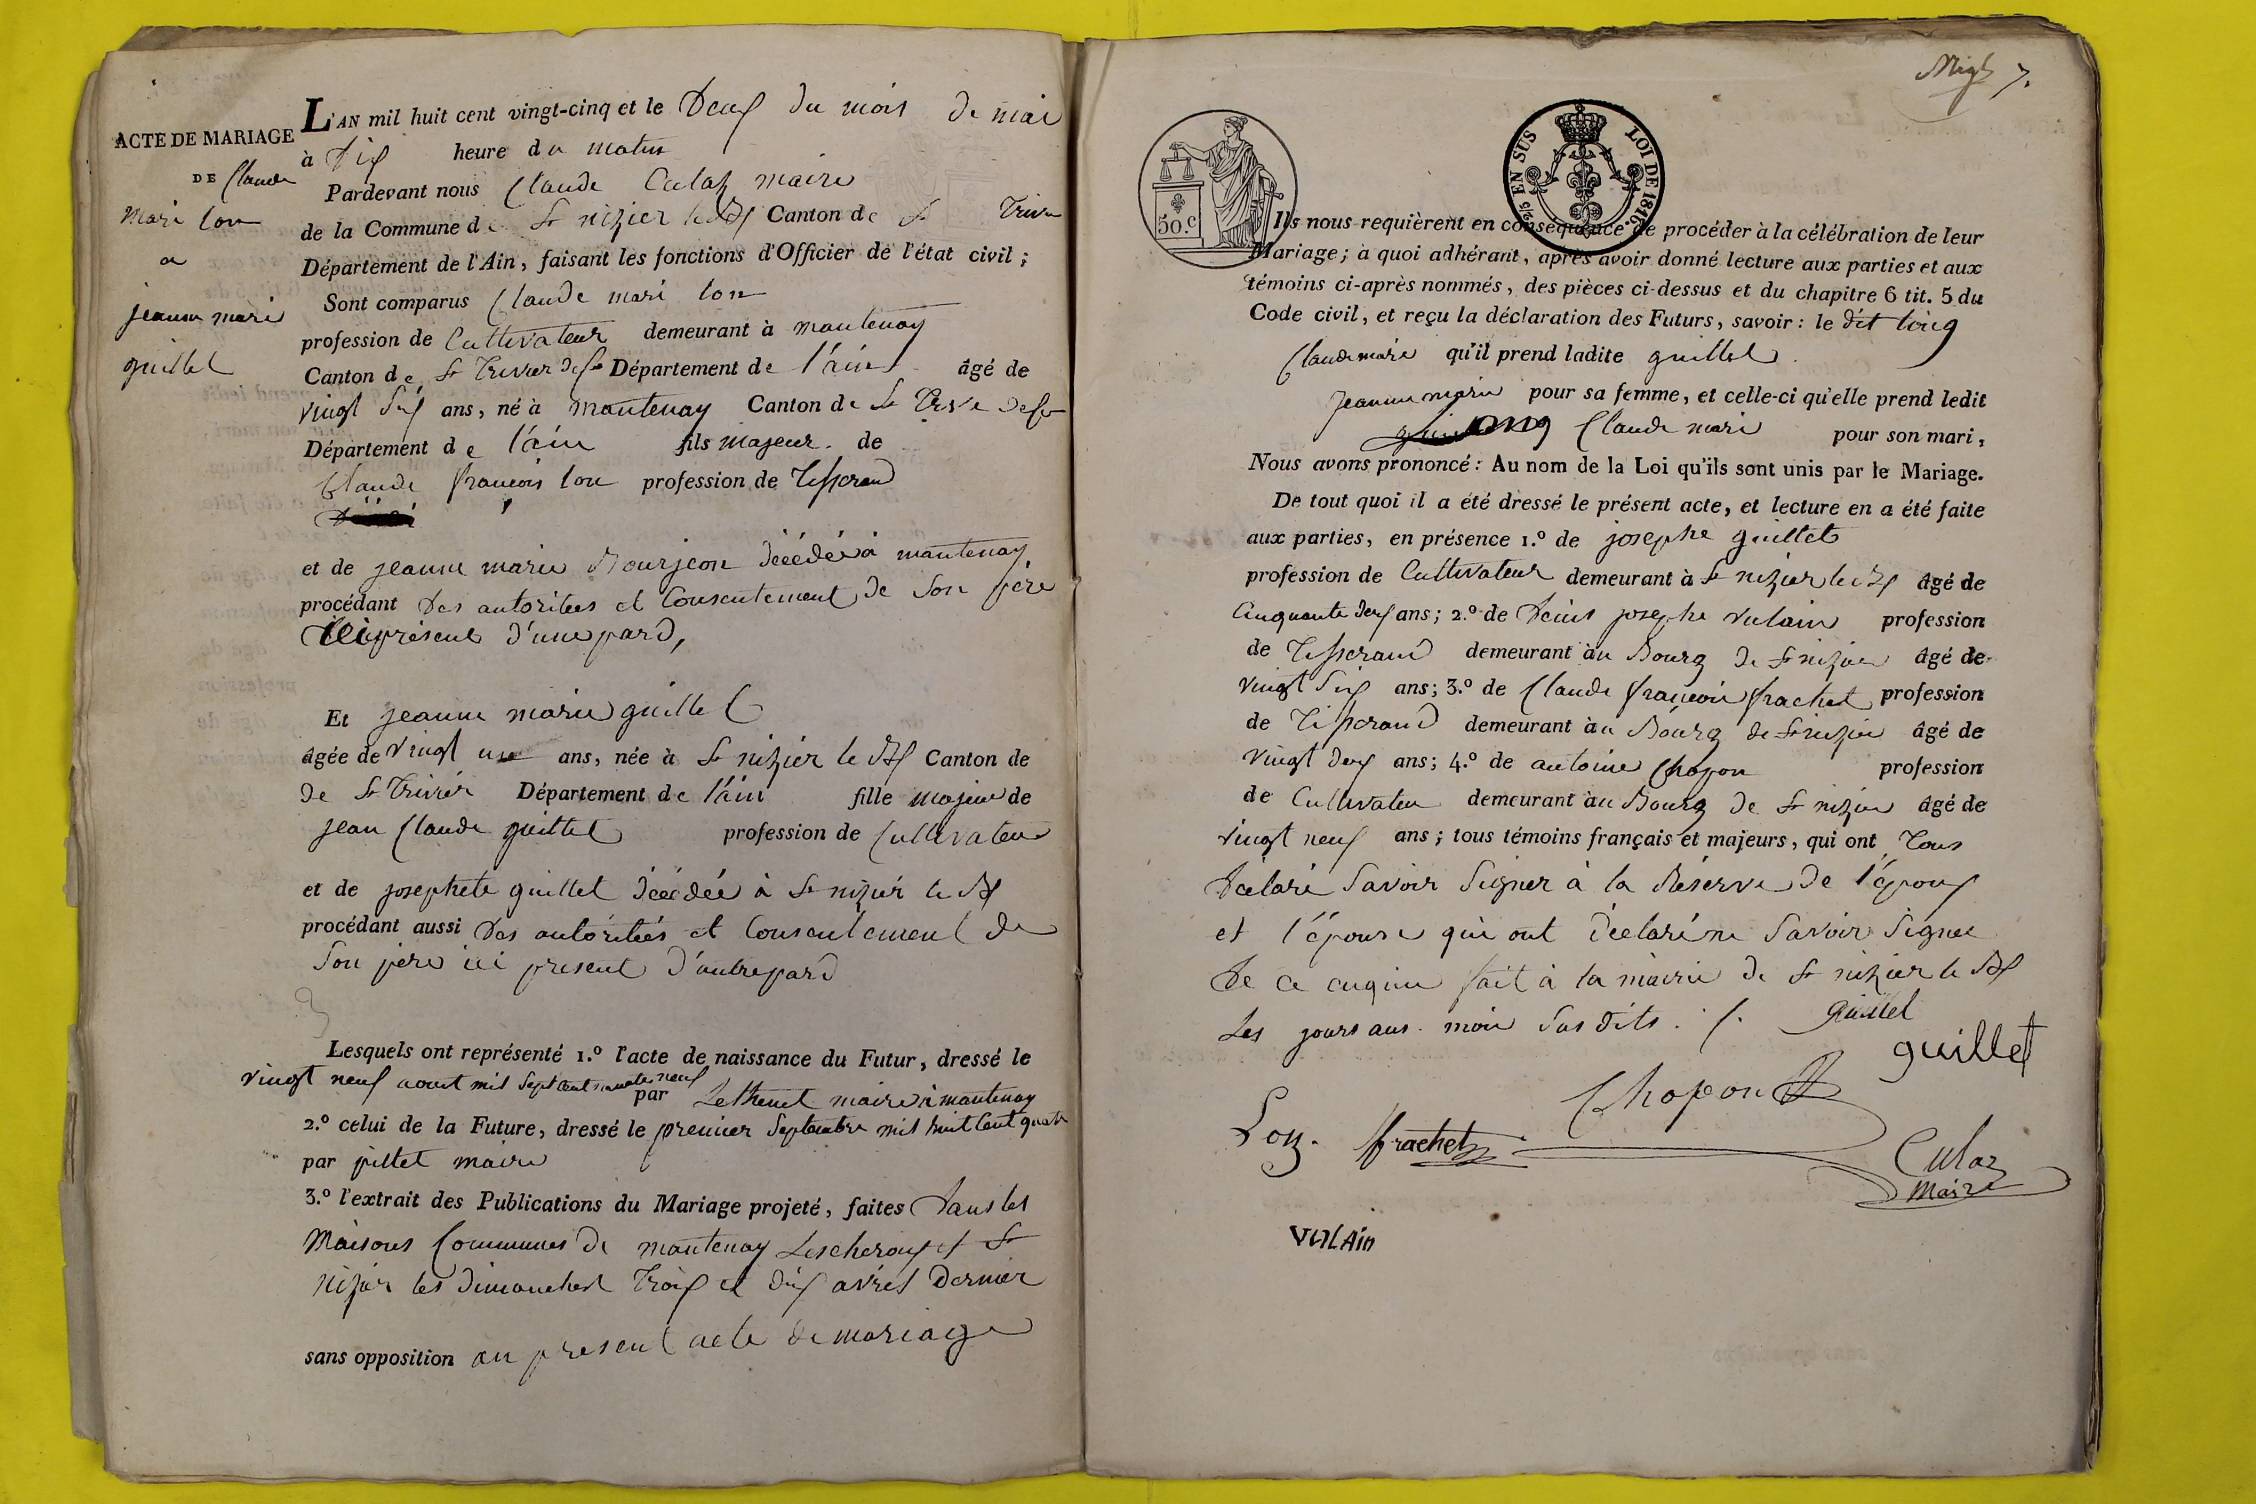 ACTE DE MARIAGE
DE Claude
Mari lon
a
jeanne mari
guillet
L'AN mil huit cent vingt-cinq et le Deux du mois de mai
à Dix heure du matin
Pardevant nous Claude Culaz maire
de la Commune de St nizier le Canton de St Trivier
Département de l'Ain, faisant les fonctions d'Officier de l'état civil ;
Sont comparus Claude mari lon
profession de Cultivateur demeurant à mantenay
Canton de St Trivier Département de l'ain âgé de
vingt Six ans, né à mantenay Canton de St
Département de l'ain fils majeur de
Claude francois lon profession de Tisserand
et de jeanne marie Bourjeon décédée à mantenay
procédant Des autoritees et Consentement de Son père
ici présent d'une pard,
Et jeanne marie guillet
âgée de vingt une ans, née à St nizier le Canton de
de St Trivier Département de l'ain fille majeur de
jean Claude guillet profession de Cultivateur
et de josephete guillet décédée à St nizier le
procédant aussi Des autóritiés et Consentement de
Son père ici present d'autre pard
Lesquels ont représenté 1.º l'acte de naissance du Futur, dressé le
vingt neuf aout mil Sept Cent neuf par maire à mantenay
2.º celui de la Future, dressé le premier Septembre mil huit Cent quatr
par pillet maire
3.º l'extrait des Publications du Mariage projeté, faites Dans les
Maisons Communes de mantenay Lescheroux et St
nizier les dimanches Trois et dix avril Dernier
sans opposition au present acte de mariage
7.
50.C
2/5 EN SUS LOI DE 1816.
Ils nous requièrent en conséquence de procéder à la célébration de leur
Mariage; à quoi adhérant, après avoir donné lecture aux parties et aux
témoins ci-après nommés, des pièces ci-dessus et du chapitre 6 tit. 5 du
Code civil, et reçu la déclaration des Futurs, savoir : le dit long
Claude marie qu'il prend ladite guillet
jeanne marie pour sa femme, et celle-ci qu'elle prend ledit
long Claude mari pour son mari,
Nous avons prononcé : Au nom de la Loi qu'ils sont unis par le Mariage.
De tout quoi il a été dressé le présent acte, et lecture en a été faite
aux parties, en présence 1.º de josephe guillet
profession de Cultivateur demeurant à St nizier le âgé de
Cinquante deux ans; 2.º de Denis josephe vulain profession
de Tisserand demeurant au Bourg de St nizier âgé de
vingt Six ans; 3.º de Claude francois frachet profession
de Tisserand demeurant au Bourg de St nizier âgé de
vingt deux ans; 4.º de antoine Chapon profession
de Cultivateur demeurant au Bourg de St nizier âgé de
vingt neuf ans; tous témoins français et majeurs, qui ont Tous
Déclaré Savoir Signer à la Réserve de l'époux
et l'épouse qui ont déclaré ne Savoir Signer
De ce enquis fait à la mairie de St nizier le
Les jours ans mois Sus dits.
guillet
guillet
Chapon
Lon. frachet
Culaz
Maire
vulain